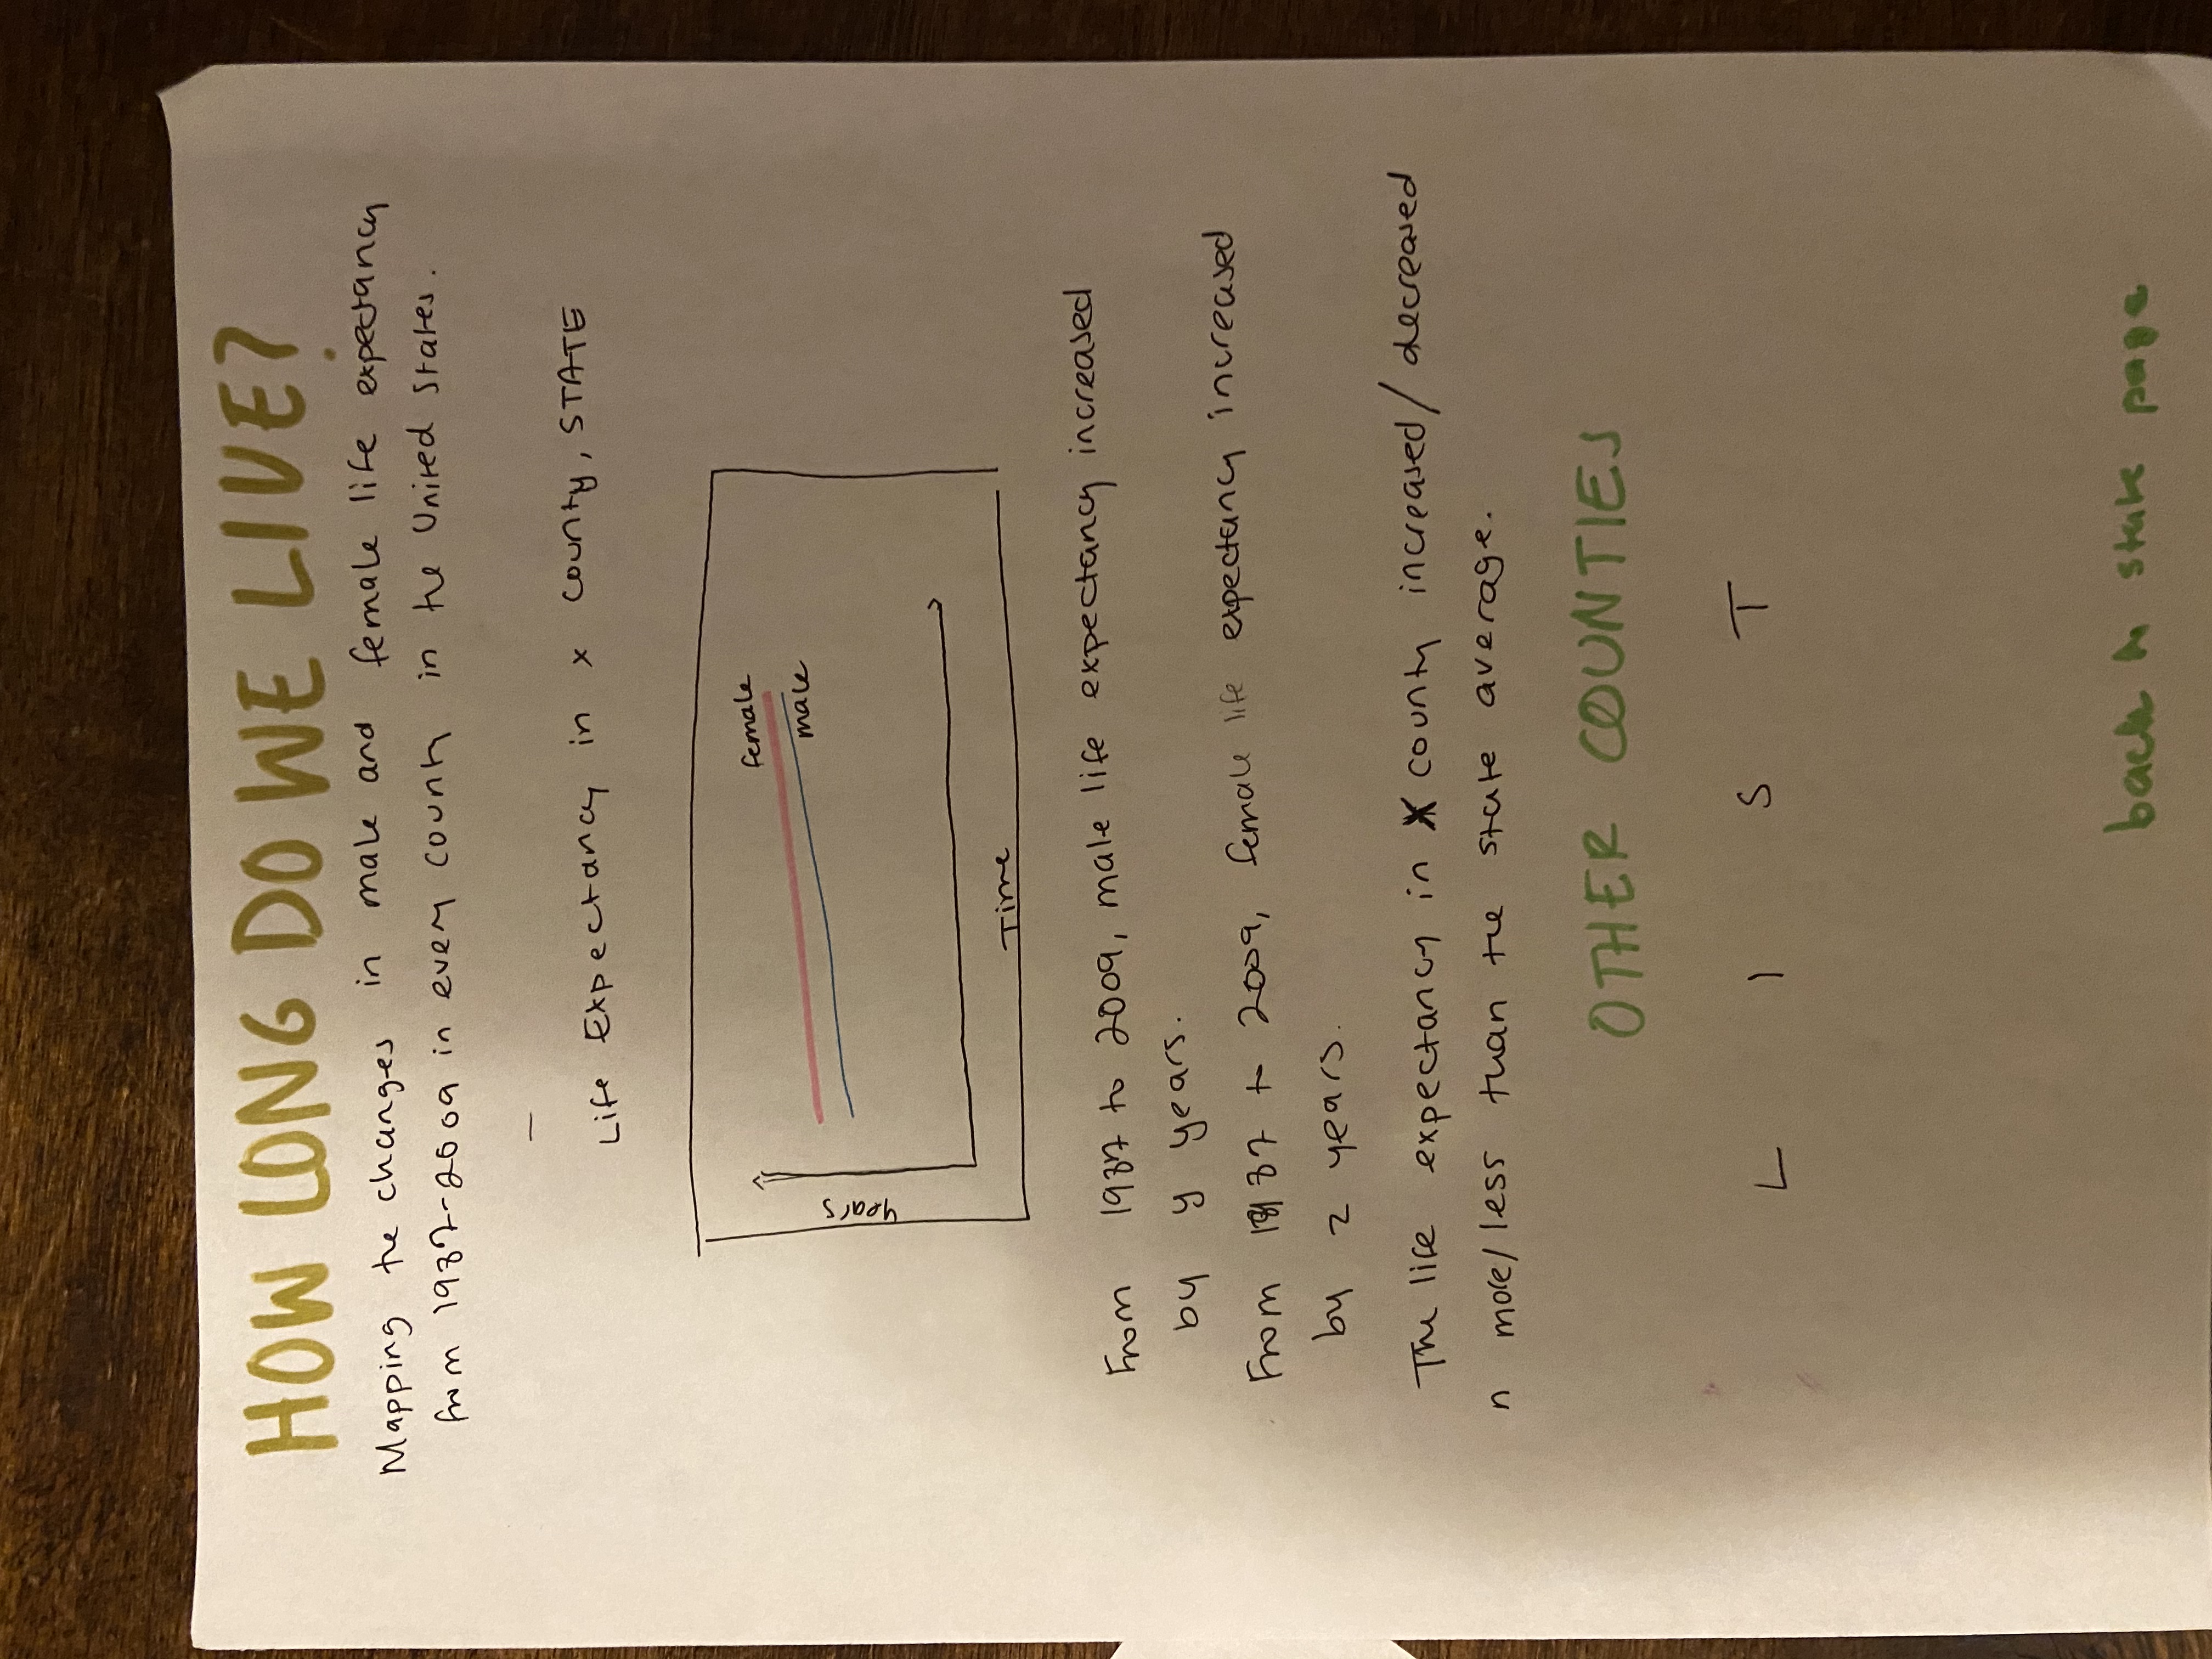 HOW LONG DO WE LIVE?
Mapping the changes in male and female life expectancy
from 1987-2009 in every county in the United States.
Life Expectancy in x county, STATE
female
male
years
Time
From 1987 to 2009, male life expectancy increased
by y years.
From 1987 to 2009, female life expectancy increased
by z years.
The life expectancy in X county increased/decreased
n more/less than the state average.
OTHER COUNTIES
L I S T
back to state page